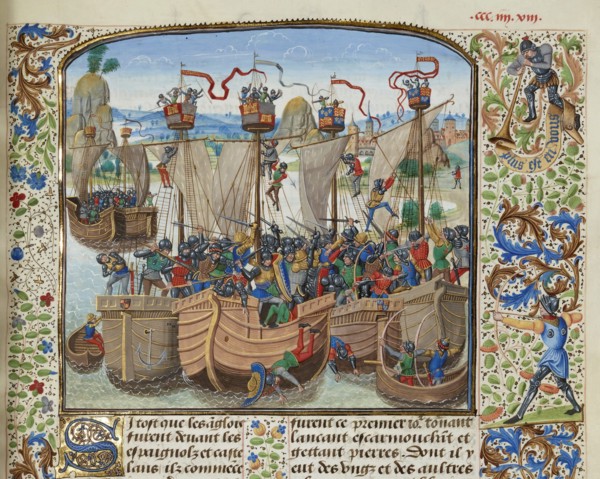 Plus est en vous
Si tost que les āglois
furent deuant les
espaignolz et caste
lans ilz commēce
furent ce premier tonant
lancant escarmouchāt et
gettant pierres. Dont il y
eut des vngz et des aultres